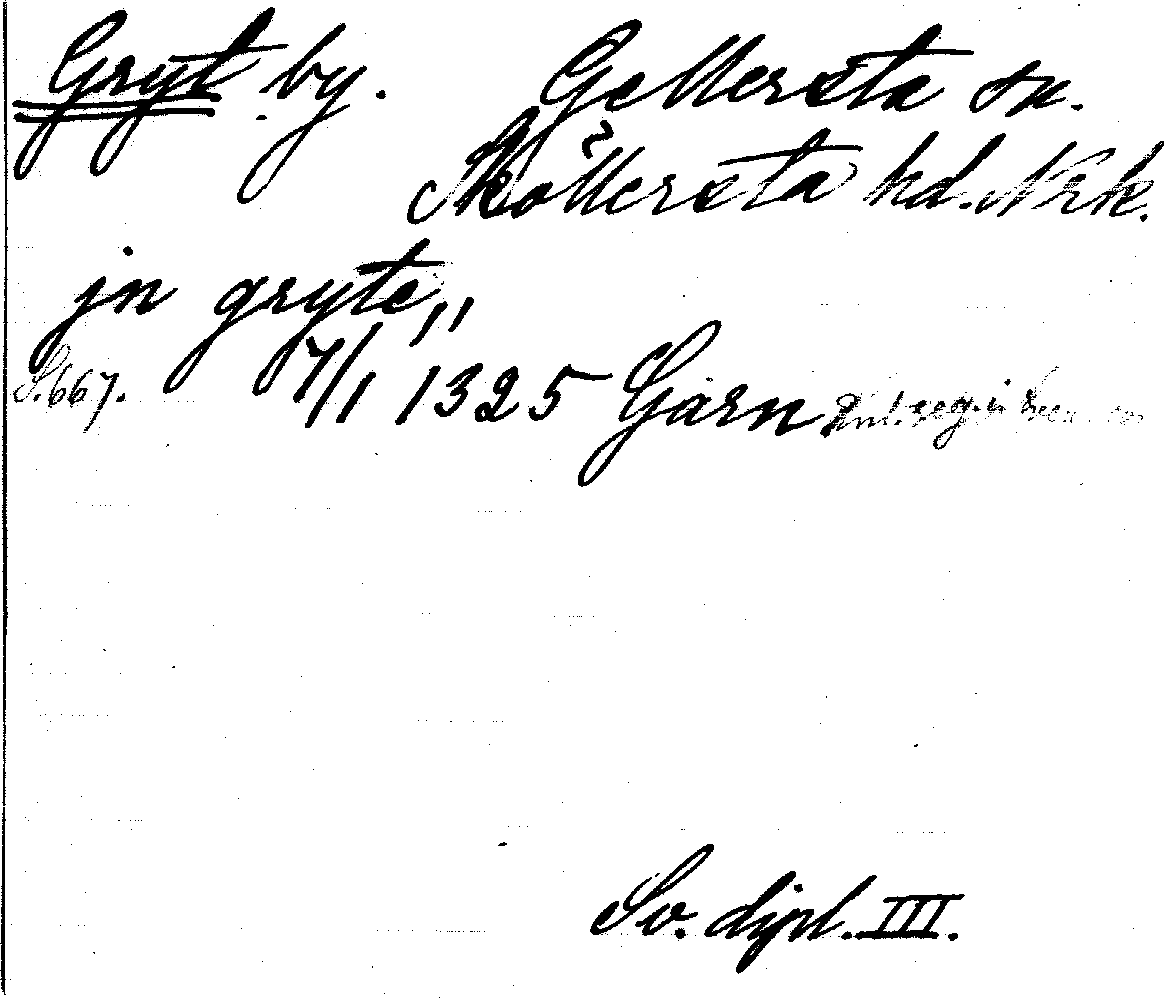 Gryt by. Gellersta sn.
Sköllersta hd. Nrk.
jn gryte,,
S. 667. 7/1 1325 Garn
Sv. dipl. III.